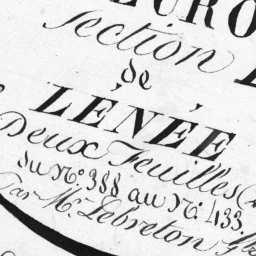 section
de
LÉNÉE
Deux Feuilles
du N.º 388 au N.º 433.
Par M. Lebreton